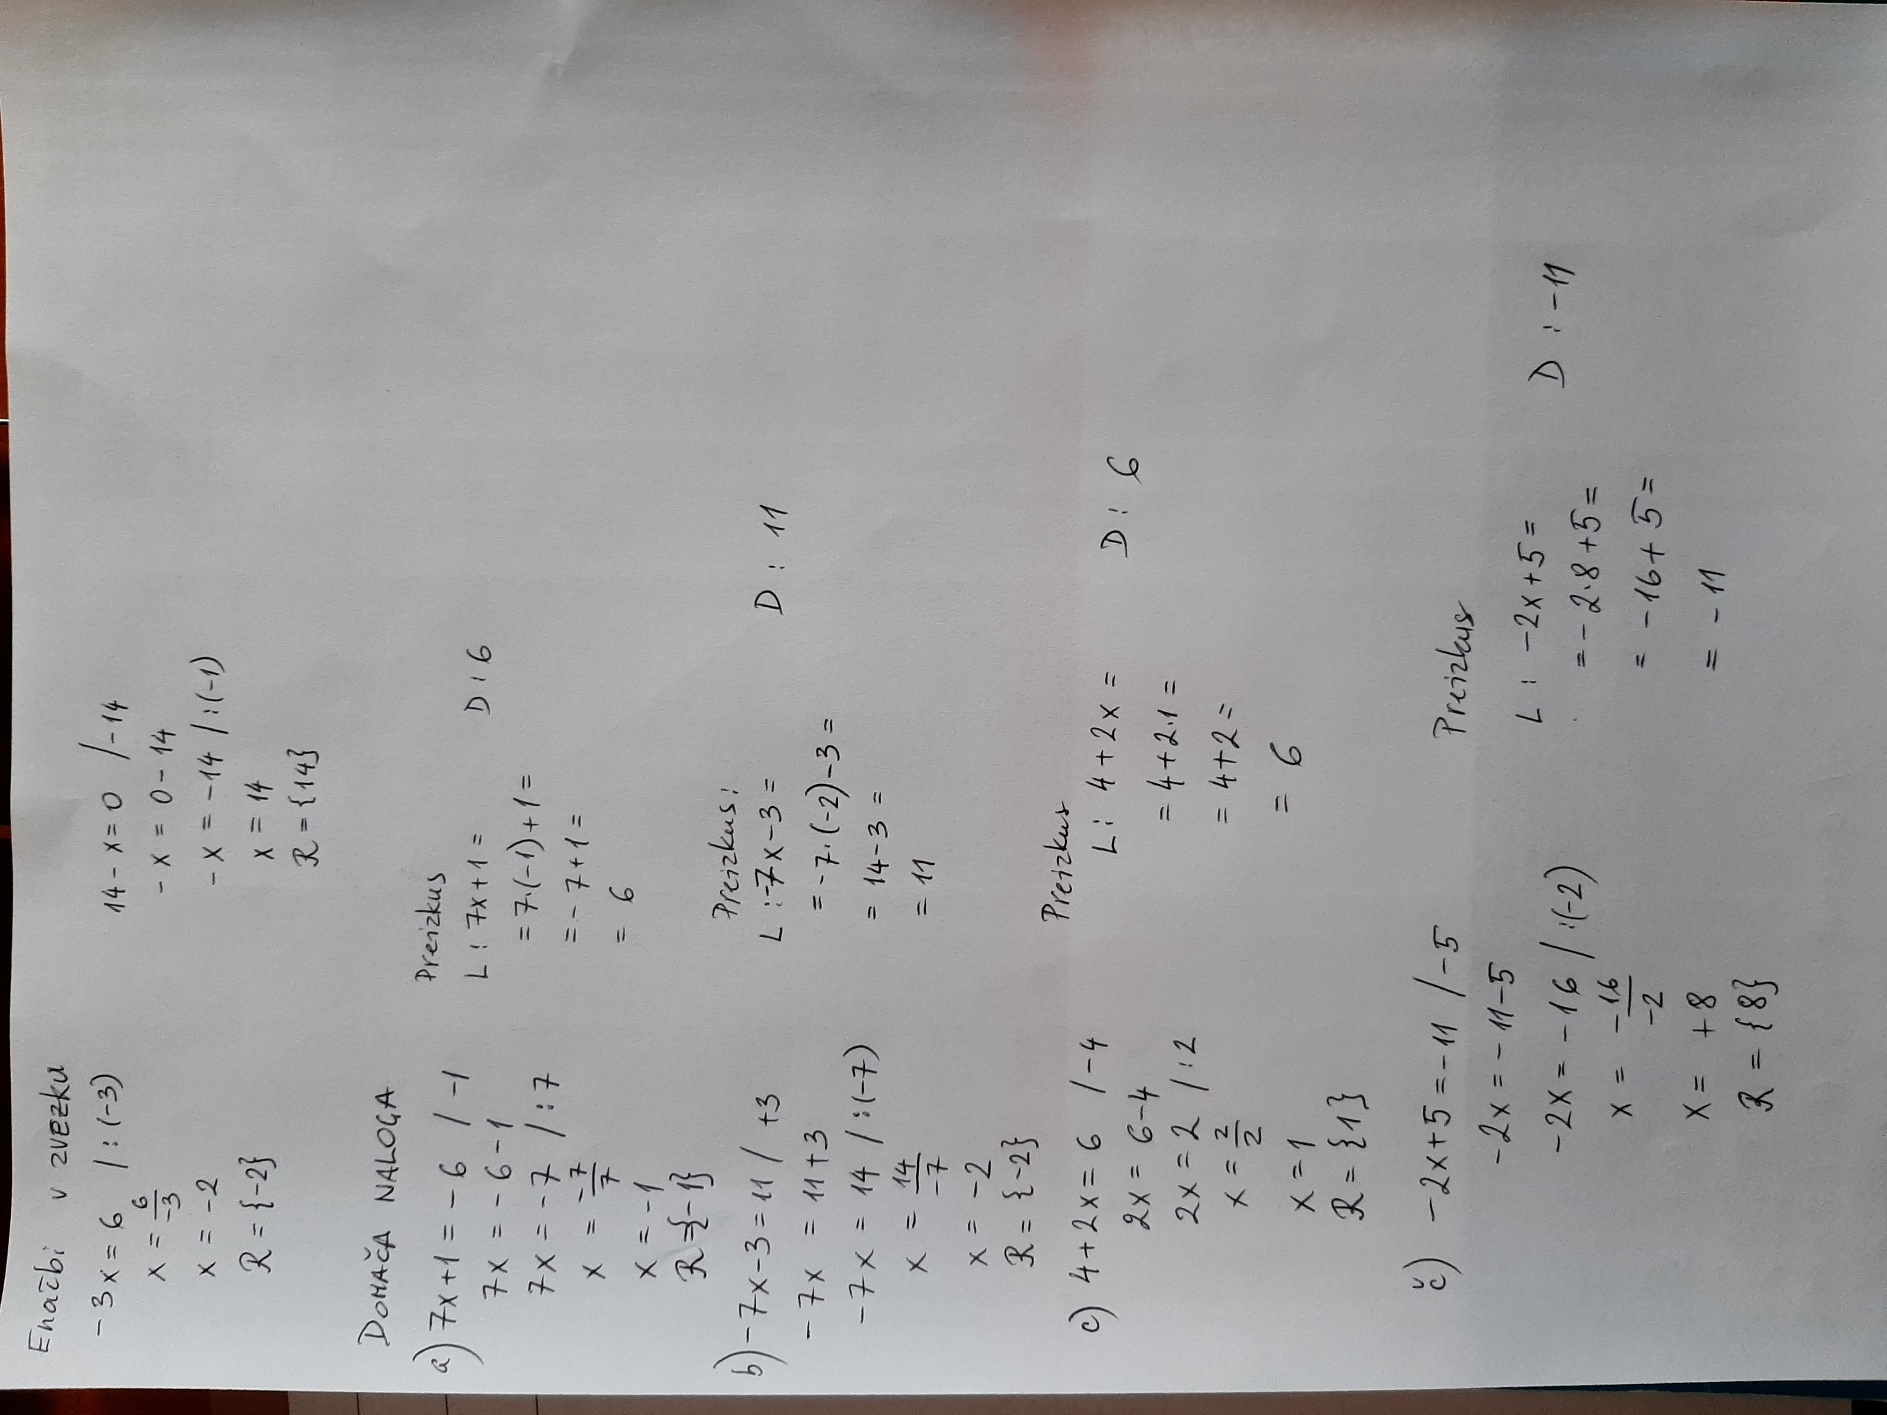 Enačbi v zvezku
-3x = 6 /:(-3)
x = 6/-3
x = -2
R = {-2}
14 - x = 0 /-14
-x = 0 - 14
-x = -14 /:(-1)
x = 14
R = {14}
DOMAČA NALOGA
a) 7x + 1 = -6 / -1
7x = -6 - 1
7x = -7 /:7
x = -7/7
x = -1
R = {-1}
Preizkus
L: 7x + 1 =
= 7·(-1) + 1 =
= -7 + 1 =
= 6
D: 6
b) -7x - 3 = 11 / +3
-7x = 11 + 3
-7x = 14 /:(-7)
x = 14/-7
x = -2
R = {-2}
Preizkus:
L: -7x - 3 =
= -7·(-2) - 3 =
= 14 - 3 =
= 11
D: 11
c) 4 + 2x = 6 /-4
2x = 6 - 4
2x = 2 /:2
x = 2/2
x = 1
R = {1}
Preizkus
L: 4 + 2x =
= 4 + 2·1 =
= 4 + 2 =
= 6
D: 6
č) -2x + 5 = -11 /-5
-2x = -11 - 5
-2x = -16 /:(-2)
x = -16/-2
x = +8
R = {8}
Preizkus
L: -2x + 5 =
= -2·8 + 5 =
= -16 + 5 =
= -11
D: -11